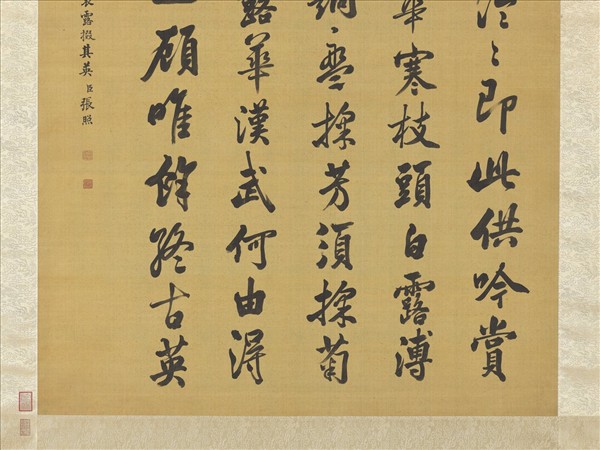 〻即此供吟賞
寒枝頭白露漙
〻盤採芳須採菊
華漢武何由得
顧唯餘終古英
露掇其英 臣張照